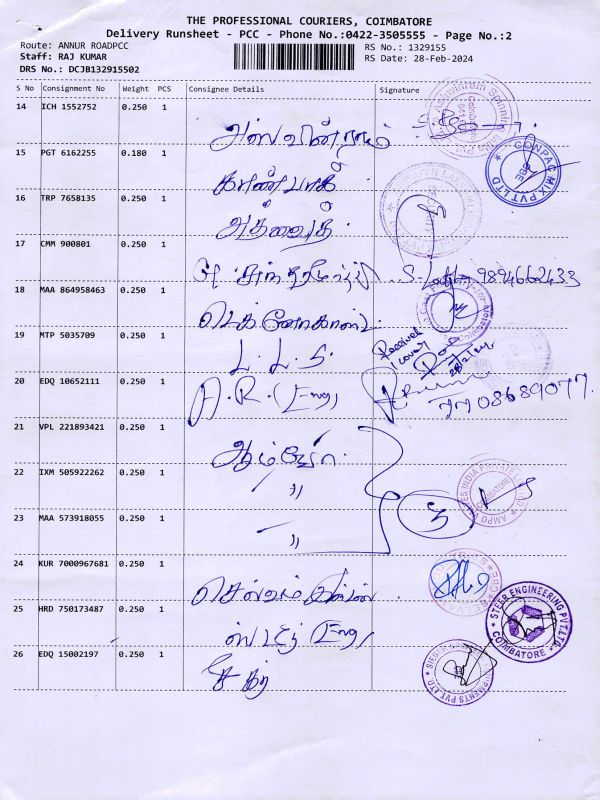 THE PROFESSIONAL COURIERS, COIMBATORE
Delivery Runsheet - PCC - Phone No.:0422-3505555 - Page No.:2
Route: ANNUR ROADPCC
RS No.: 1329155
Staff: RAJ KUMAR
RS Date: 28-Feb-2024
DRS No.: DCJB132915502
S No Consignment No Weight PCS Consignee Details Signature
14 ICH 1552752 0.250 1
அஸ்வின்ராம்
15 PGT 6162255 0.180 1
CONPAC MIX PVT LTD
கான்பாக்
16 TRP 7658135 0.250 1
அத்வைத்
17 CMM 900801 0.250 1
9894662433
18 MAA 864958463 0.250 1
டெக்னோகாஸ்ட்
19 MTP 5035709 0.250 1
Received
1 cover
L. L. S.
28/2/24
20 EDQ 10652111 0.250 1
A. R. (Eng)
7708689077.
21 VPL 221893421 0.250 1
22 IXM 505922262 0.250 1
"
3
23 MAA 573918055 0.250 1
"
24 KUR 7000967681 0.250 1
25 HRD 750173487 0.250 1
STEER ENGINEERING PVT.LTD.
COIMBATORE
ஸ்டீர் (Eng)
26 EDQ 15002197 0.250 1